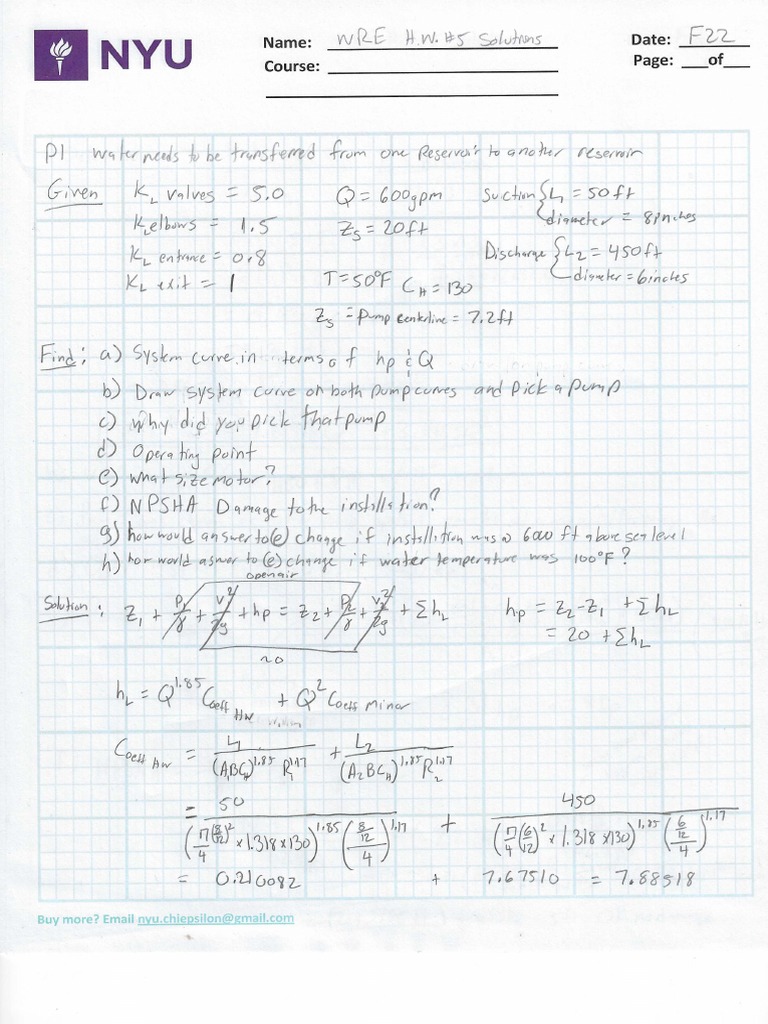 NYU
Name: WRE H.W. #5 Solutions
Date: F22
Course:
Page: ___of___
P1 Water needs to be transferred from one Reservoir to another reservoir
Given K_L valves = 5.0 Q = 600gpm Suction { L_1 = 50 ft
diameter = 8 inches
K_L elbows = 1.5 Z_s = 20 ft
K_L entrance = 0.8 Discharge { L_2 = 450 ft
diameter = 6 inches
K_L exit = 1 T = 50°F C_H = 130
Z_s = pump centerline = 7.2 ft
Find: a) System curve in terms of hp & Q
b) Draw system curve on both pump curves and pick a pump
c) Why did you pick that pump
d) Operating point
e) What size motor?
f) NPSHA Damage to the installation?
g) how would answer to (e) change if instllition was @ 6000 ft above sea level
h) how would aswer to (e) change if water temperature was 100°F?
open air
Solution: Z_1 + P_1/γ + V^2/2g + hp = Z_2 + P_2/γ + V_2^2/2g + Σh_L hp = Z_2 - Z_1 + Σh_L
= 20 + Σh_L
≈0
h_L = Q^1.85 Coeff HW + Q^2 Coeff Minor
Coeff HW = L_1/((A_1BC_H)^1.85 R_1^1.17) + L_2/((A_2BC_H)^1.85 R_2^1.17)
= 50/((π/4 (8/12)^2 × 1.318 × 130)^1.85 ((8/12)/4)^1.17) + 450/((π/4 (6/12)^2 × 1.318 × 130)^1.85 ((6/12)/4)^1.17)
= 0.210082 + 7.67510 = 7.88518
Buy more? Email nyu.chiepsilon@gmail.com